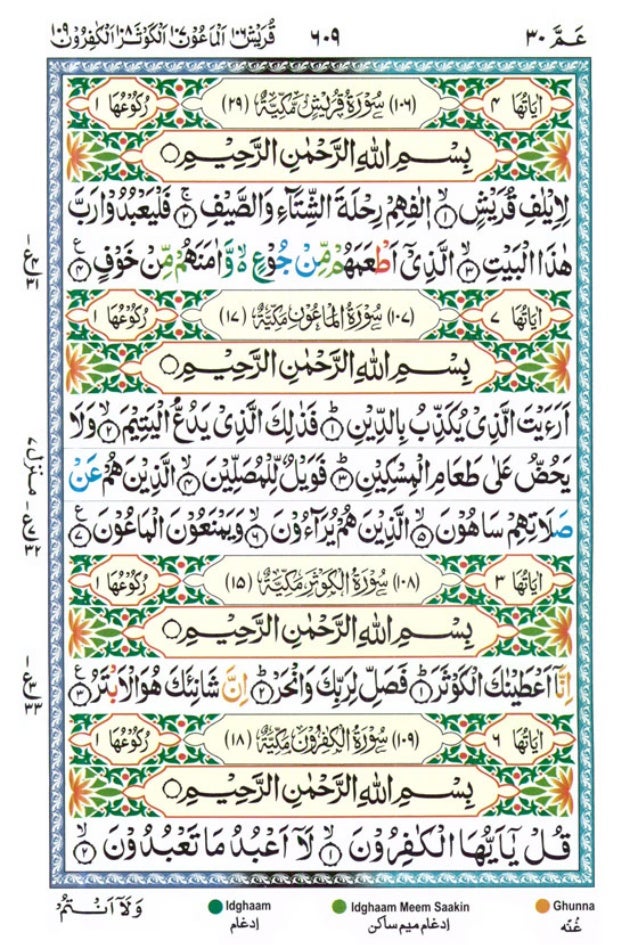 عَمَّ ٣٠ ٦٠٩ قُرَيْش ١٠٦ اَلْمَاعُوْن ١٠٧ اَلْكَوْثَر ١٠٨ اَلْكٰفِرُوْن ١٠٩
اٰيَاتُهَا ٤ (١٠٦) سُوْرَةُ قُرَيْشٍ مَّكِّيَّةٌ (٢٩) رُكُوْعُهَا ١
بِسْمِ اللهِ الرَّحْمٰنِ الرَّحِيْمِ
لِاِيْلٰفِ قُرَيْشٍ ۙ﴿١﴾ اٖلٰفِهِمْ رِحْلَةَ الشِّتَآءِ وَالصَّيْفِ ۚ﴿٢﴾ فَلْيَعْبُدُوْا رَبَّ
هٰذَا الْبَيْتِ ۙ﴿٣﴾ الَّذِيْٓ اَطْعَمَهُمْ مِّنْ جُوْعٍ ۙ۬ وَّاٰمَنَهُمْ مِّنْ خَوْفٍ ﴿٤﴾ ع
ع ٤ ٣١
اٰيَاتُهَا ٧ (١٠٧) سُوْرَةُ الْمَاعُوْنِ مَكِّيَّةٌ (١٧) رُكُوْعُهَا ١
بِسْمِ اللهِ الرَّحْمٰنِ الرَّحِيْمِ
اَرَءَيْتَ الَّذِيْ يُكَذِّبُ بِالدِّيْنِ ؕ﴿١﴾ فَذٰلِكَ الَّذِيْ يَدُعُّ الْيَتِيْمَ ۙ﴿٢﴾ وَلَا
يَحُضُّ عَلٰى طَعَامِ الْمِسْكِيْنِ ؕ﴿٣﴾ فَوَيْلٌ لِّلْمُصَلِّيْنَ ۙ﴿٤﴾ الَّذِيْنَ هُمْ عَنْ
صَلَاتِهِمْ سَاهُوْنَ ۙ﴿٥﴾ الَّذِيْنَ هُمْ يُرَآءُوْنَ ۙ﴿٦﴾ وَيَمْنَعُوْنَ الْمَاعُوْنَ ﴿٧﴾ ع
منزل ٧
ع ٧ ٣٢
اٰيَاتُهَا ٣ (١٠٨) سُوْرَةُ الْكَوْثَرِ مَكِّيَّةٌ (١٥) رُكُوْعُهَا ١
بِسْمِ اللهِ الرَّحْمٰنِ الرَّحِيْمِ
اِنَّآ اَعْطَيْنٰكَ الْكَوْثَرَ ؕ﴿١﴾ فَصَلِّ لِرَبِّكَ وَانْحَرْ ؕ﴿٢﴾ اِنَّ شَانِئَكَ هُوَ الْاَبْتَرُ ﴿٣﴾ ع
ع ٣ ٣٣
اٰيَاتُهَا ٦ (١٠٩) سُوْرَةُ الْكٰفِرُوْنَ مَكِّيَّةٌ (١٨) رُكُوْعُهَا ١
بِسْمِ اللهِ الرَّحْمٰنِ الرَّحِيْمِ
قُلْ يٰٓاَيُّهَا الْكٰفِرُوْنَ ۙ﴿١﴾ لَآ اَعْبُدُ مَا تَعْبُدُوْنَ ۙ﴿٢﴾
وَلَآ اَنْتُمْ
Idghaam Idghaam Meem Saakin Ghunna
إدغام إدغام ميم ساكن غُنّه